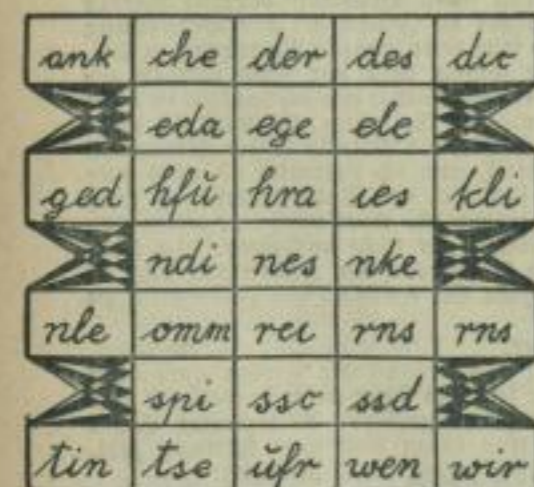 ank che der des dic
eda ege ele
ged hfŭ hra ies kli
ndi nes nke
nle omm rei rns rns
spi ssc ssd
tin tse ŭfr wen wir